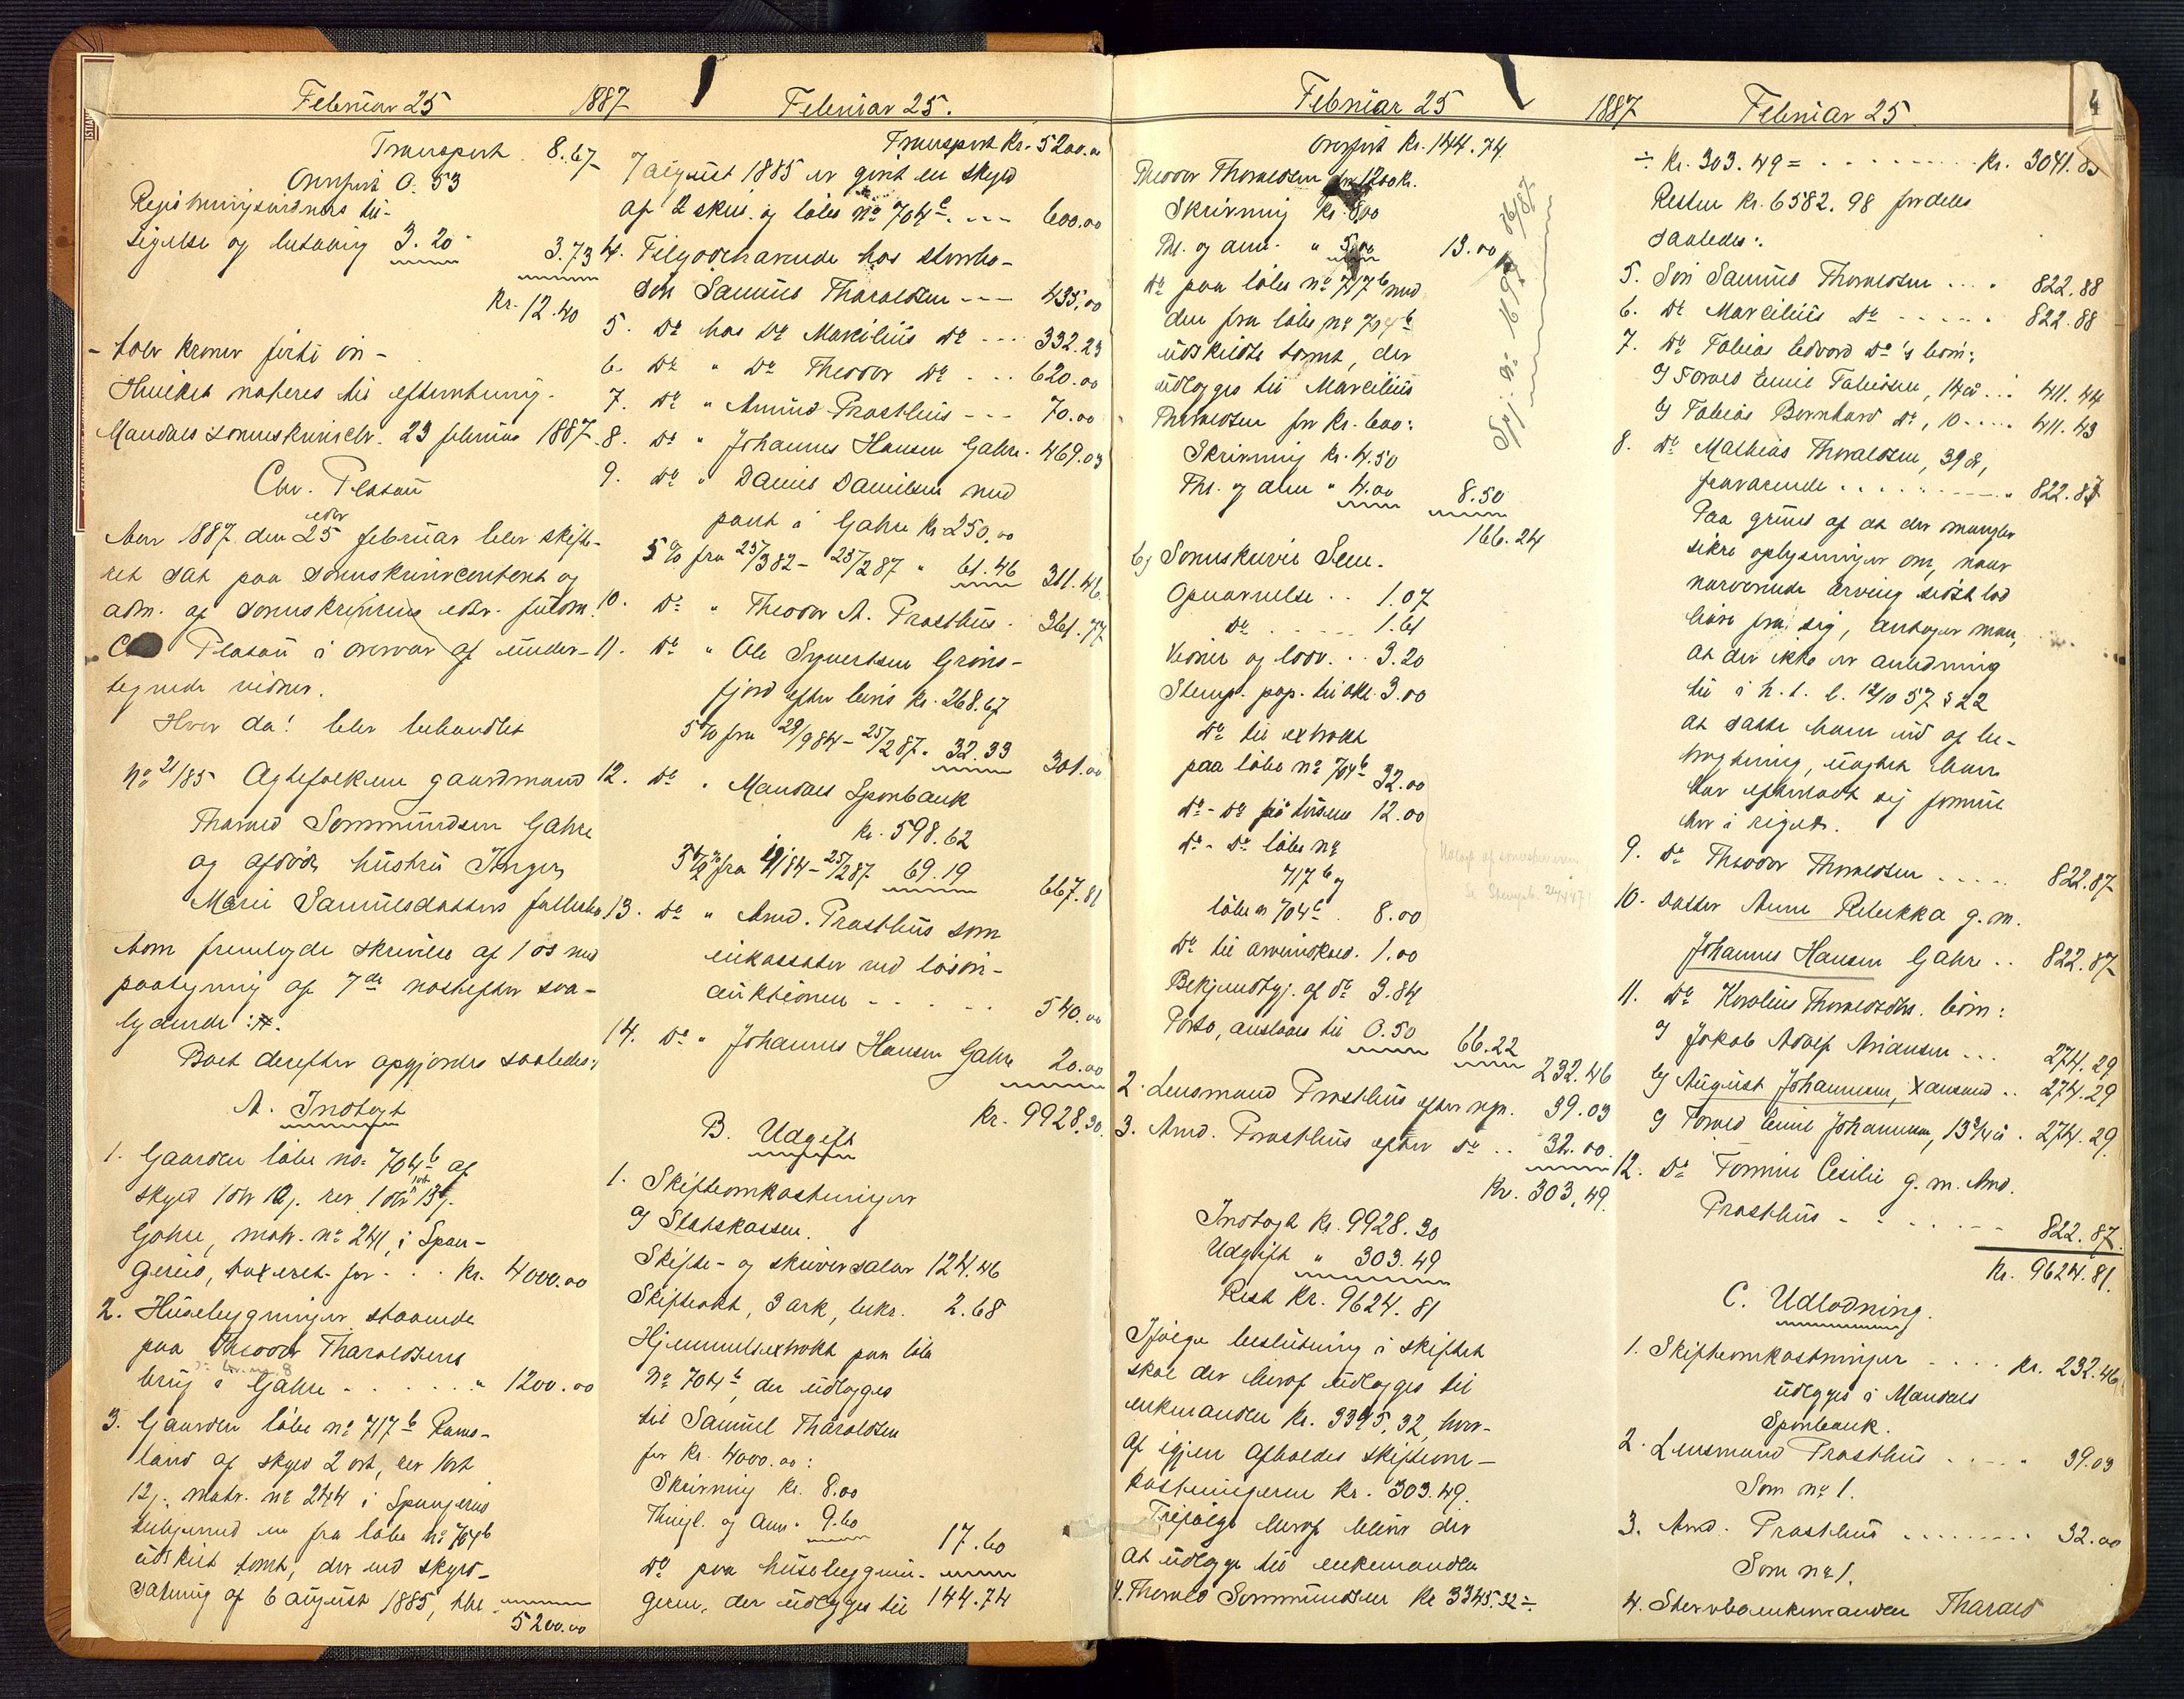 Februar 25
1887
Februar 25.
Transport 8.67
Overført 0.53
Registreringsvidners til-
sigelse og betaling 3.20
3.73
Kr. 12.40
- tolv kroner firti øre -
Hvilket noteres til efterretning.
Mandals sorenskriveri 23 februar 1887.
Chr. Platou
Aar 1887 den 25 februar blev skifte-
ret sat paa sorenskrivercontoret og
adm. af sorenskriveren edsv. fuldm.
C Platou i overvær af under-
tegnede vidner.
Hvor da! blev behandlet
No 21/85 Ægtefolkene gaardmand
Tharald Sommundsen Gahre
og afdøde hustru Inger
Marie Samuelsdatters fællesbo
som fremlagde skrivelse af 1 ds med
paategning af 7de næstefter saa-
lydende :/:.
Boet derefter opgjordes saaledes:
A. Indtægt
1. Gaarden løbe no. 704 b af
skyld 1 ort 12 s. rev. 1 ort 13 s.
Gahre, matr. no 241 i Span-
gereid, taxeret for - . . Kr. 4000.00
2. Husebygninger staaende
paa Theodor Tharaldsens
brug i Gahre - . . . . . " 1200.00
3. Gaarden løbe no 717 b Rams-
land af skyld 2 ort, rev. 1 ort
12 s. matr. no 244 i Spangereid
iberegnet en fra løbe no 704 b
udskilt tomt, der ved skyld-
sætning af 6 august 1885, thl.
5200.00
Transport Kr. 5200.00
7 august 1885 er givet en skyld
af 2 skill. og løbe no 704 c. . -- 600.00
4. Tilgodehavende hos stervbo-
søn Samuel Tharaldsen --- 435.00
5. Do hos Do Marcelius Do --- 332.23
6. Do " Do Theodor Do . . . 620.00
7. Do " Amund Prasthus - - - 70.00
8. Do " Johannes Hansen Gahre . 469.03
9. Do " Daniel Danielsen med
pant i Gahre Kr. 250.00
5 % fra 25/3 82 - 25/2 87 " 61.46 311.46
10. Do " Theodor A. Prasthus . 361.77
11. Do " Ole Syvertsen Grøns-
fjord efter bevis Kr. 268.67
5 % fra 29/9 84 - 25/2 87. 32.33
301.00
12. Do " Mandals Sparebank
Kr. 598.62
fra 84 - 25/2 87 69.19
667.81
13. Do " Amd. Prasthus som
inkassator ved løsøre-
auktionen - . . . . 540.00
14. Do " Johannes Hansen Gahre 20.00
Kr. 9928.30.
B. Udgift
1. Skifteomkostninger
a) Statskassen.
Skifte- og skriversalær 124.46
Skifteakt, 3 ark, bekr. 2.68
Hjemmelsextrakt paa løbe
No 704 b, der udlægges
til Samuel Tharaldsen
for Kr. 4000.00:
Skrivning Kr. 8.00
Thingl. og Ann. " 9.60 17.60
Do paa husebygnin-
gerne, der udlægges til 144.74
Februar 25
1887
Februar 25.
4
Overført Kr. 144.74.
Theodor Tharaldsen for 1200 kr.
Skrivning Kr. 8.00
Thl. og ann. " 5.00 13.00
Do paa løbe no 717 b med
den fra løbe no 704 b
udskildte tomt, der
udlægges til Marcelius
Tharaldsen for Kr. 600:
Skrivning Kr. 4.50
Thl. og ann " 4.00 8.50
166.24
b) Sorenskriver Sem.
Opnævnelse . . 1.07
Do . . - . . 1.61
Vidner og lodv. . . 3.20
Stemp. pap. til akt. 3.00
Do til extrakt
paa løbe no 704 b 32.00
Do - Do på husene 12.00
Do - Do løbe no
717 b og
løbe no 704 c . 8.00
Do til arveudskud. 1.00
Bekjendtgj. af Do 3.84
Porto, anslaaes til 0.50 66.22
232.46
2. Lensmand Prasthus efter regn. 39.03
3. Amd. Prasthus efter Do . . 32.00.
Kr. 303.49.
Indtægt Kr. 9928.30
Udgift " 303.49
Rest Kr. 9624.81
Ifølge beslutning i skiftet
skal der heraf udlægges til
enkemanden Kr. 3345.32, hvor-
af igjen afholdes skifteom-
kostningerne Kr. 303.49.
Tilfølge heraf bliver der
at udlægge til enkemanden
4. Tharald Sommundsen Kr 3345.32 ÷
÷ Kr. 303.49 = . . . . . . . Kr. 3041.83
Resten Kr. 6582.98 fordeles
saaledes:
5. Søn Samuel Tharaldsen . . . . 822.88
6. Do Marcelius Do - . . . . . 822.88
7. Do Tobias Edvard Do's børn:
a) Torvald Emil Tobiassen, 14 år . . : 411.44
b) Tobias Bernhard Do, 10 - . . . . 411.43
8. Do Mathias Tharaldsen, 39 år,
fraværende . . . . . . . . - . " 822.87
Paa grund af at der mangler
sikre oplysninger om, naar
nærværende arving sidst lod
høre fra sig, antager man,
at der ikke er anledning
til i h. t. l. 12/10 57 § 22
at sætte ham ud af be-
tragtning, uagtet han
har efterladt sig formue
her i riget.
9. Do Theodor Tharaldsen . . . . . 822.87
10. Datter Anne Rebekka g. m.
Johannes Hansen Gahre . . 822.87
11. Do Karoline Tharaldsdtrs. børn:
a) Jakob Adolf Ariansen . . . 274.29
b) August Johannesen, . . 274.29
c) Torvald Emil Johannesen, 13 3/4 år . 274.29
12. Do Tomine Cecilie g. m. Amd.
Prasthus - . . . . . . - - 822.87.
Kr. 9624.81.
C. Udlodning.
1. Skifteomkostninger - . . . Kr. 232.46
udlægges i Mandals
Sparebank.
2. Lensmand Prasthus . . . . " 39.03
Som no 1.
3. Amd. Prasthus . . . . . . . . . 32.00
Som no 1.
4. Stervboenkemanden Tharald